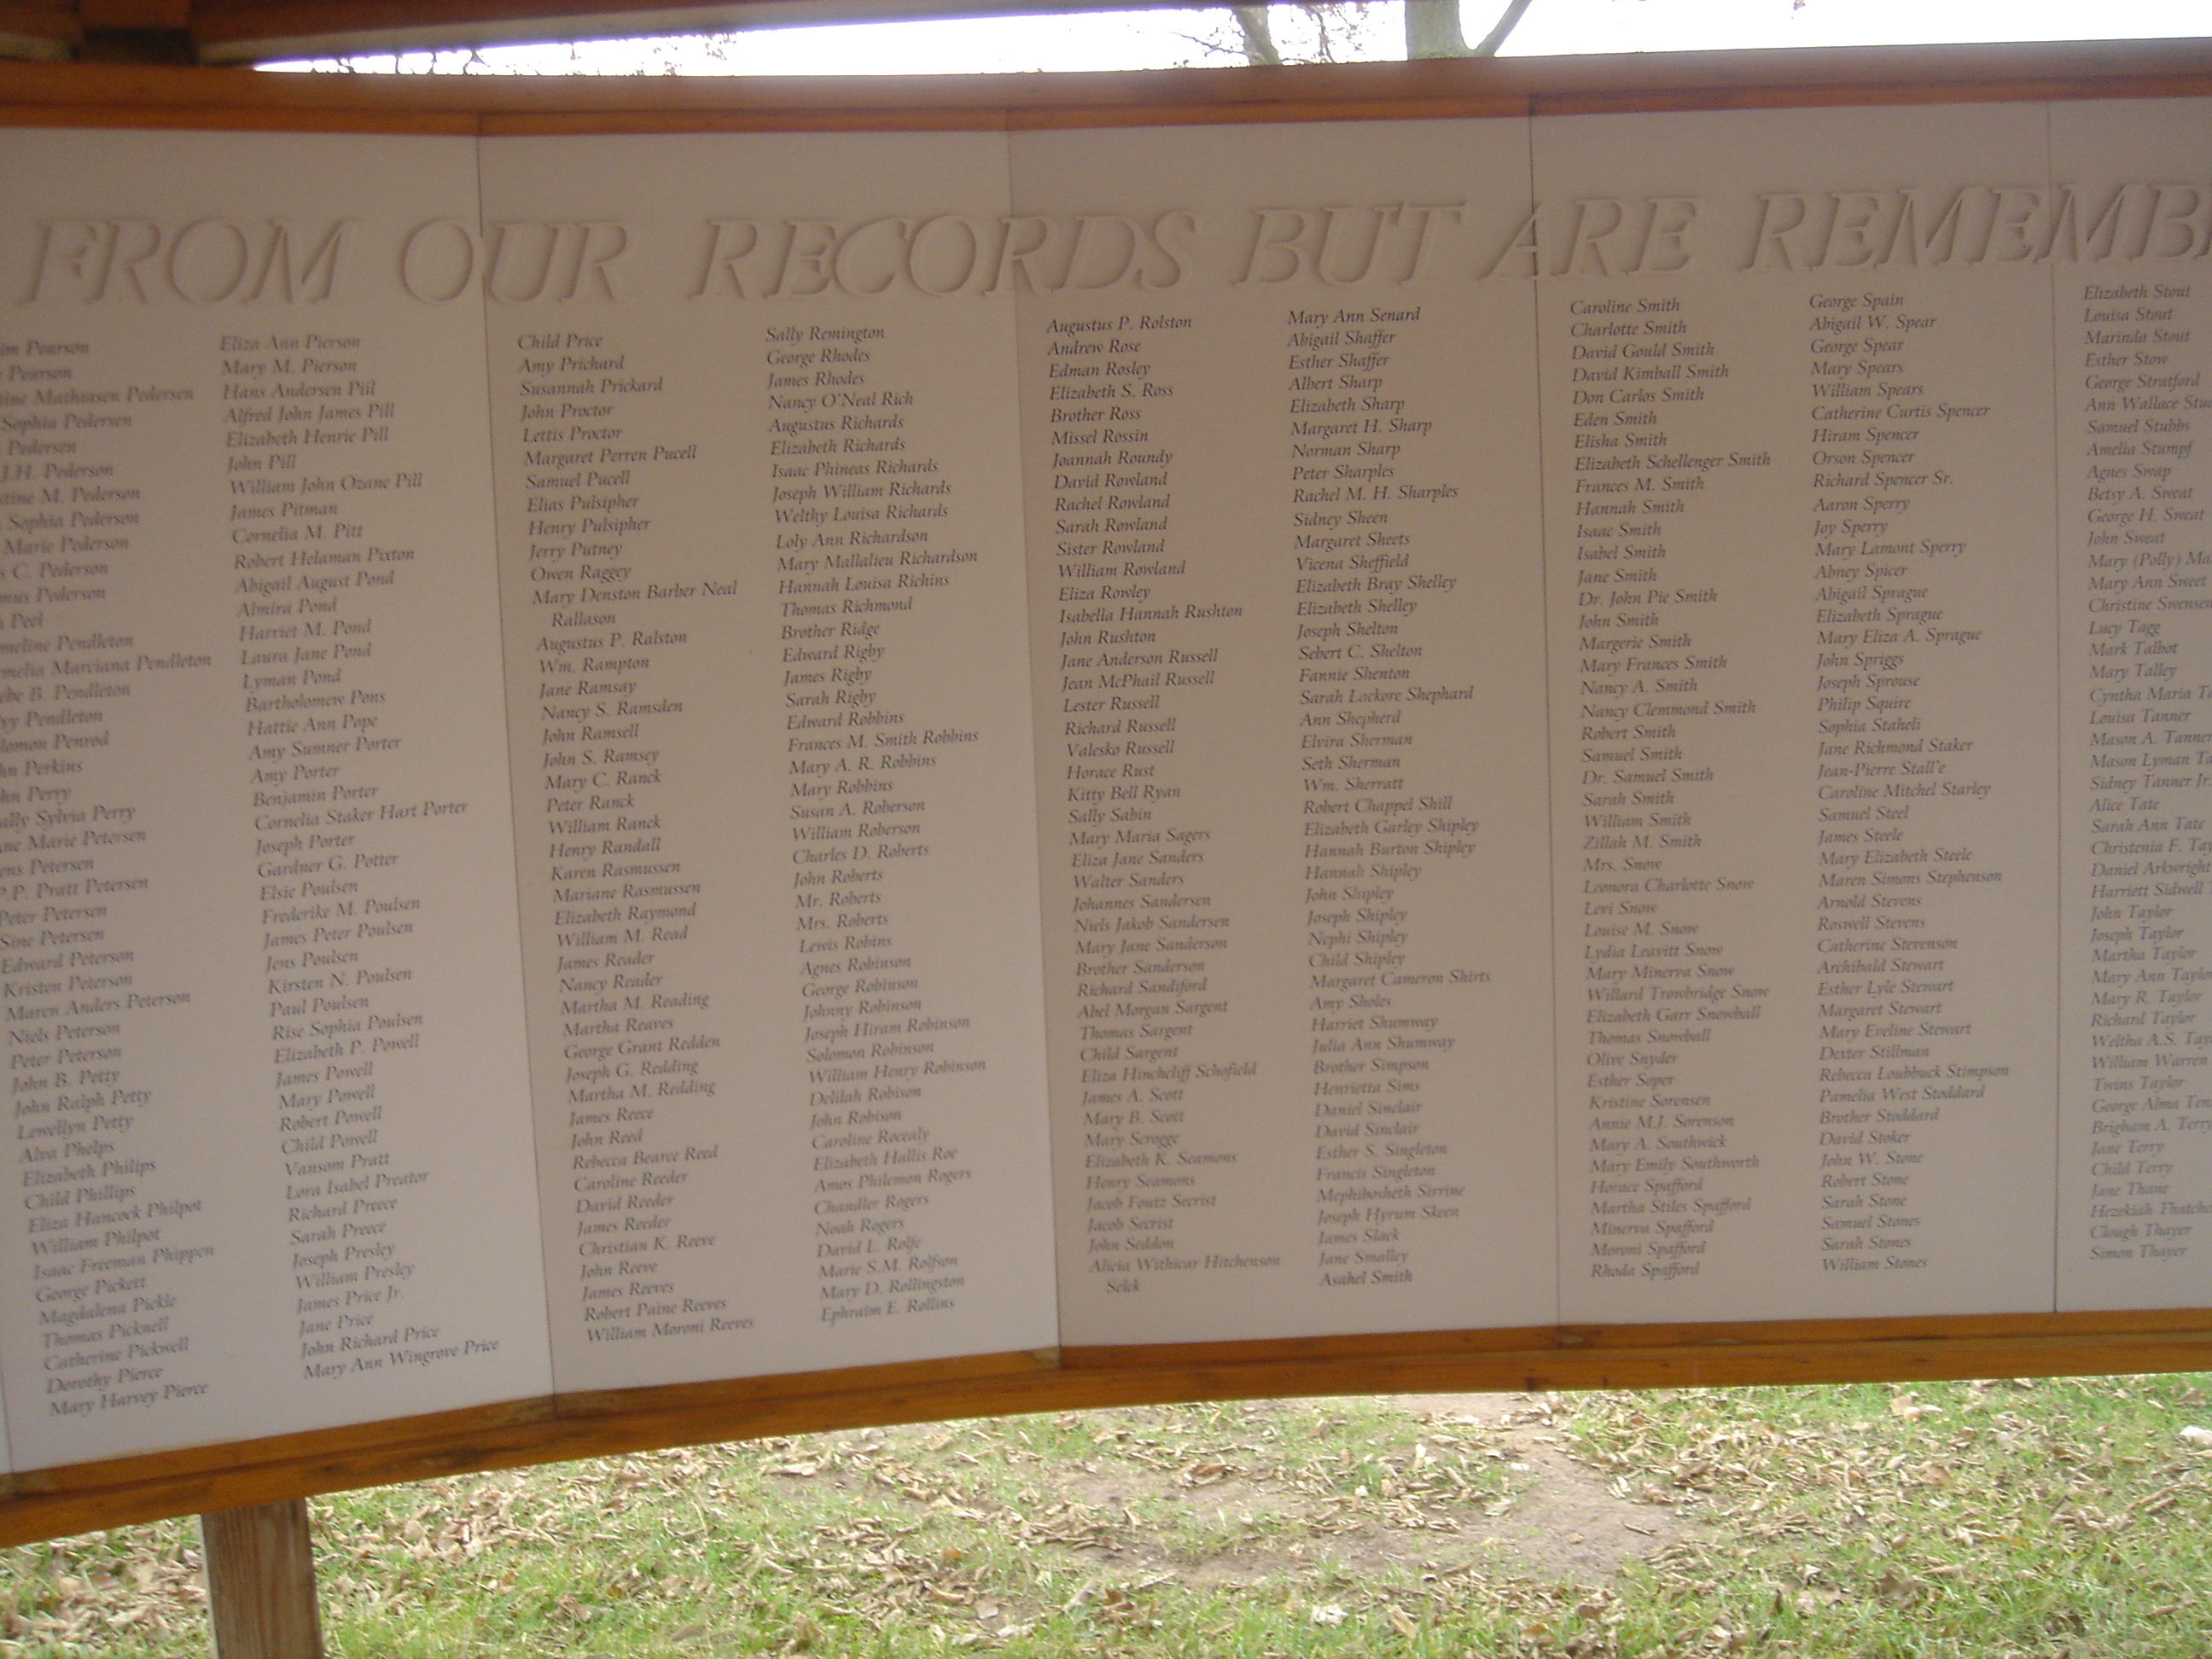 FROM OUR RECORDS BUT ARE
Pearson
Pearson
Mathiasen Pedersen
Sophia Pedersen
Pedersen
J.H. Pederson
M. Pederson
Sophia Pederson
Marie Pederson
C. Pederson
Pederson
Peel
Pendleton
Marciana Pendleton
B. Pendleton
Pendleton
Penrod
Perkins
Perry
Sylvia Perry
Marie Petersen
Petersen
P.P. Pratt Petersen
Peter Petersen
Sine Petersen
Edward Peterson
Kristen Peterson
Maren Anders Peterson
Niels Peterson
Peter Peterson
John B. Petty
John Ralph Petty
Lewellyn Petty
Alva Phelps
Elizabeth Philips
Child Phillips
Eliza Hancock Philpot
William Philpot
Isaac Freeman Phippen
George Pickett
Magdalena Pickle
Thomas Picknell
Catherine Pickwell
Dorothy Pierce
Mary Harvey Pierce
Eliza Ann Pierson
Mary M. Pierson
Hans Andersen Piil
Alfred John James Pill
Elizabeth Henrie Pill
John Pill
William John Ozane Pill
James Pitman
Cornelia M. Pitt
Robert Helaman Pixton
Abigail August Pond
Almira Pond
Harriet M. Pond
Laura Jane Pond
Lyman Pond
Bartholomew Pons
Hattie Ann Pope
Amy Sumner Porter
Amy Porter
Benjamin Porter
Cornelia Staker Hart Porter
Joseph Porter
Gardner G. Potter
Elsie Poulsen
Frederike M. Poulsen
James Peter Poulsen
Jens Poulsen
Kirsten N. Poulsen
Paul Poulsen
Rise Sophia Poulsen
Elizabeth P. Powell
James Powell
Mary Powell
Robert Powell
Child Powell
Vansom Pratt
Lora Isabel Preator
Richard Preece
Sarah Preece
Joseph Presley
William Presley
James Price Jr.
Jane Price
John Richard Price
Mary Ann Wingrove Price
Child Price
Amy Prichard
Susannah Prickard
John Proctor
Lettis Proctor
Margaret Perren Pucell
Samuel Pucell
Elias Pulsipher
Henry Pulsipher
Jerry Putney
Owen Raggey
Mary Denston Barber Neal
Rallason
Augustus P. Ralston
Wm. Rampton
Jane Ramsay
Nancy S. Ramsden
John Ramsell
John S. Ramsey
Mary C. Ranck
Peter Ranck
William Ranck
Henry Randall
Karen Rasmussen
Mariane Rasmussen
Elizabeth Raymond
William M. Read
James Reader
Nancy Reader
Martha M. Reading
Martha Reaves
George Grant Redden
Joseph G. Redding
Martha M. Redding
James Reece
John Reed
Rebecca Bearce Reed
Caroline Reeder
David Reeder
James Reeder
Christian K. Reeve
John Reeve
James Reeves
Robert Paine Reeves
William Moroni Reeves
Sally Remington
George Rhodes
James Rhodes
Nancy O'Neal Rich
Augustus Richards
Elizabeth Richards
Isaac Phineas Richards
Joseph William Richards
Welthy Louisa Richards
Loly Ann Richardson
Mary Mallalieu Richardson
Hannah Louisa Richins
Thomas Richmond
Brother Ridge
Edward Rigby
James Rigby
Sarah Rigby
Edward Robbins
Frances M. Smith Robbins
Mary A. R. Robbins
Mary Robbins
Susan A. Roberson
William Roberson
Charles D. Roberts
John Roberts
Mr. Roberts
Mrs. Roberts
Lewis Robins
Agnes Robinson
George Robinson
Johnny Robinson
Joseph Hiram Robinson
Solomon Robinson
William Henry Robinson
Delilah Robison
John Robison
Caroline Rocealy
Elizabeth Hallis Roe
Amos Philemon Rogers
Chandler Rogers
Noah Rogers
David L. Rolfe
Marie S.M. Rolfson
Mary D. Rollingston
Ephraim E. Rollins
Augustus P. Rolston
Andrew Rose
Edman Rosley
Elizabeth S. Ross
Brother Ross
Missel Rossin
Joannah Roundy
David Rowland
Rachel Rowland
Sarah Rowland
Sister Rowland
William Rowland
Eliza Rowley
Isabella Hannah Rushton
John Rushton
Jane Anderson Russell
Jean McPhail Russell
Lester Russell
Richard Russell
Valesko Russell
Horace Rust
Kitty Bell Ryan
Sally Sabin
Mary Maria Sagers
Eliza Jane Sanders
Walter Sanders
Johannes Sandersen
Niels Jakob Sandersen
Mary Jane Sanderson
Brother Sanderson
Richard Sandiford
Abel Morgan Sargent
Thomas Sargent
Child Sargent
Eliza Hinchcliff Schofield
James A. Scott
Mary B. Scott
Mary Scrogge
Elizabeth K. Seamons
Henry Seamons
Jacob Foutz Secrist
Jacob Secrist
John Seddon
Alicia Withicar Hitchenson
Selck
Mary Ann Senard
Abigail Shaffer
Esther Shaffer
Albert Sharp
Elizabeth Sharp
Margaret H. Sharp
Norman Sharp
Peter Sharples
Rachel M. H. Sharples
Sidney Sheen
Margaret Sheets
Vicena Sheffield
Elizabeth Bray Shelley
Elizabeth Shelley
Joseph Shelton
Sebert C. Shelton
Fannie Shenton
Sarah Lackore Shephard
Ann Shepherd
Elvira Sherman
Seth Sherman
Wm. Sherratt
Robert Chappel Shill
Elizabeth Garley Shipley
Hannah Burton Shipley
Hannah Shipley
John Shipley
Joseph Shipley
Nephi Shipley
Child Shipley
Margaret Cameron Shirts
Amy Sholes
Harriet Shumway
Julia Ann Shumway
Brother Simpson
Henrietta Sims
Daniel Sinclair
David Sinclair
Esther S. Singleton
Francis Singleton
Mephibosheth Sirrine
Joseph Hyrum Skeen
James Slack
Jane Smalley
Asahel Smith
Caroline Smith
Charlotte Smith
David Gould Smith
David Kimball Smith
Don Carlos Smith
Eden Smith
Elisha Smith
Elizabeth Schellenger Smith
Frances M. Smith
Hannah Smith
Isaac Smith
Isabel Smith
Jane Smith
Dr. John Pie Smith
John Smith
Margerie Smith
Mary Frances Smith
Nancy A. Smith
Nancy Clemmond Smith
Robert Smith
Samuel Smith
Dr. Samuel Smith
Sarah Smith
William Smith
Zillah M. Smith
Mrs. Snow
Leonora Charlotte Snow
Levi Snow
Louise M. Snow
Lydia Leavitt Snow
Mary Minerva Snow
Willard Trowbridge Snow
Elizabeth Garr Snowball
Thomas Snowball
Olive Snyder
Esther Soper
Kristine Sorensen
Annie M.J. Sorenson
Mary A. Southwick
Mary Emily Southworth
Horace Spafford
Martha Stiles Spafford
Minerva Spafford
Moroni Spafford
Rhoda Spafford
George Spain
Abigail W. Spear
George Spear
Mary Spears
William Spears
Catherine Curtis Spencer
Hiram Spencer
Orson Spencer
Richard Spencer Sr.
Aaron Sperry
Joy Sperry
Mary Lamont Sperry
Abney Spicer
Abigail Sprague
Elizabeth Sprague
Mary Eliza A. Sprague
John Spriggs
Joseph Sprouse
Philip Squire
Sophia Staheli
Jane Richmond Staker
Jean-Pierre Stall'e
Caroline Mitchel Starley
Samuel Steel
James Steele
Mary Elizabeth Steele
Maren Simons Stephenson
Arnold Stevens
Roswell Stevens
Catherine Stevenson
Archibald Stewart
Esther Lyle Stewart
Margaret Stewart
Mary Eveline Stewart
Dexter Stillman
Rebecca Loubbuck Stimpson
Pamelia West Stoddard
Brother Stoddard
David Stoker
John W. Stone
Robert Stone
Sarah Stone
Samuel Stones
Sarah Stones
William Stones
Elizabeth Stout
Louisa Stout
Marinda Stout
Esther Stow
George Stratford
Ann Wallace
Samuel Stubbs
Amelia Stumpf
Agnes Swap
Betsy A. Sweat
George H. Sweat
John Sweat
Mary (Polly)
Mary Ann Sweet
Christine Swensen
Lucy Tagg
Mark Talbot
Mary Talley
Cyntha Maria
Louisa Tanner
Mason A. Tanner
Mason Lyman
Sidney Tanner Jr.
Alice Tate
Sarah Ann Tate
Christenia F.
Daniel Arkwright
Harriett Sidwell
John Taylor
Joseph Taylor
Martha Taylor
Mary Ann Taylor
Mary R. Taylor
Richard Taylor
Weltha A.S.
William Warren
Twins Taylor
George Alma
Brigham A. Terry
Jane Terry
Child Terry
Jane Thane
Hezekiah
Clough Thayer
Simon Thayer